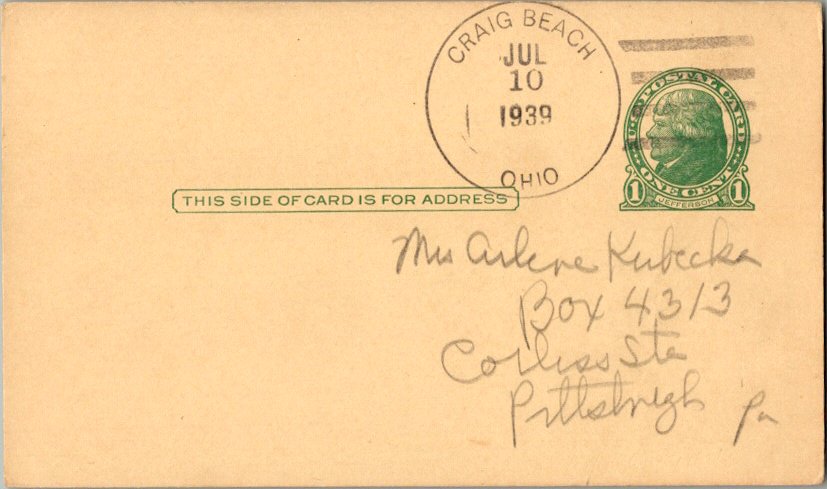 CRAIG BEACH
JUL
10
1939
OHIO
U.S. POSTAL CARD
ONE CENT
1 1
JEFFERSON
THIS SIDE OF CARD IS FOR ADDRESS
Mrs Arlene Kubecka
Box 4313
Corliss Sta
Pittsburgh Pa